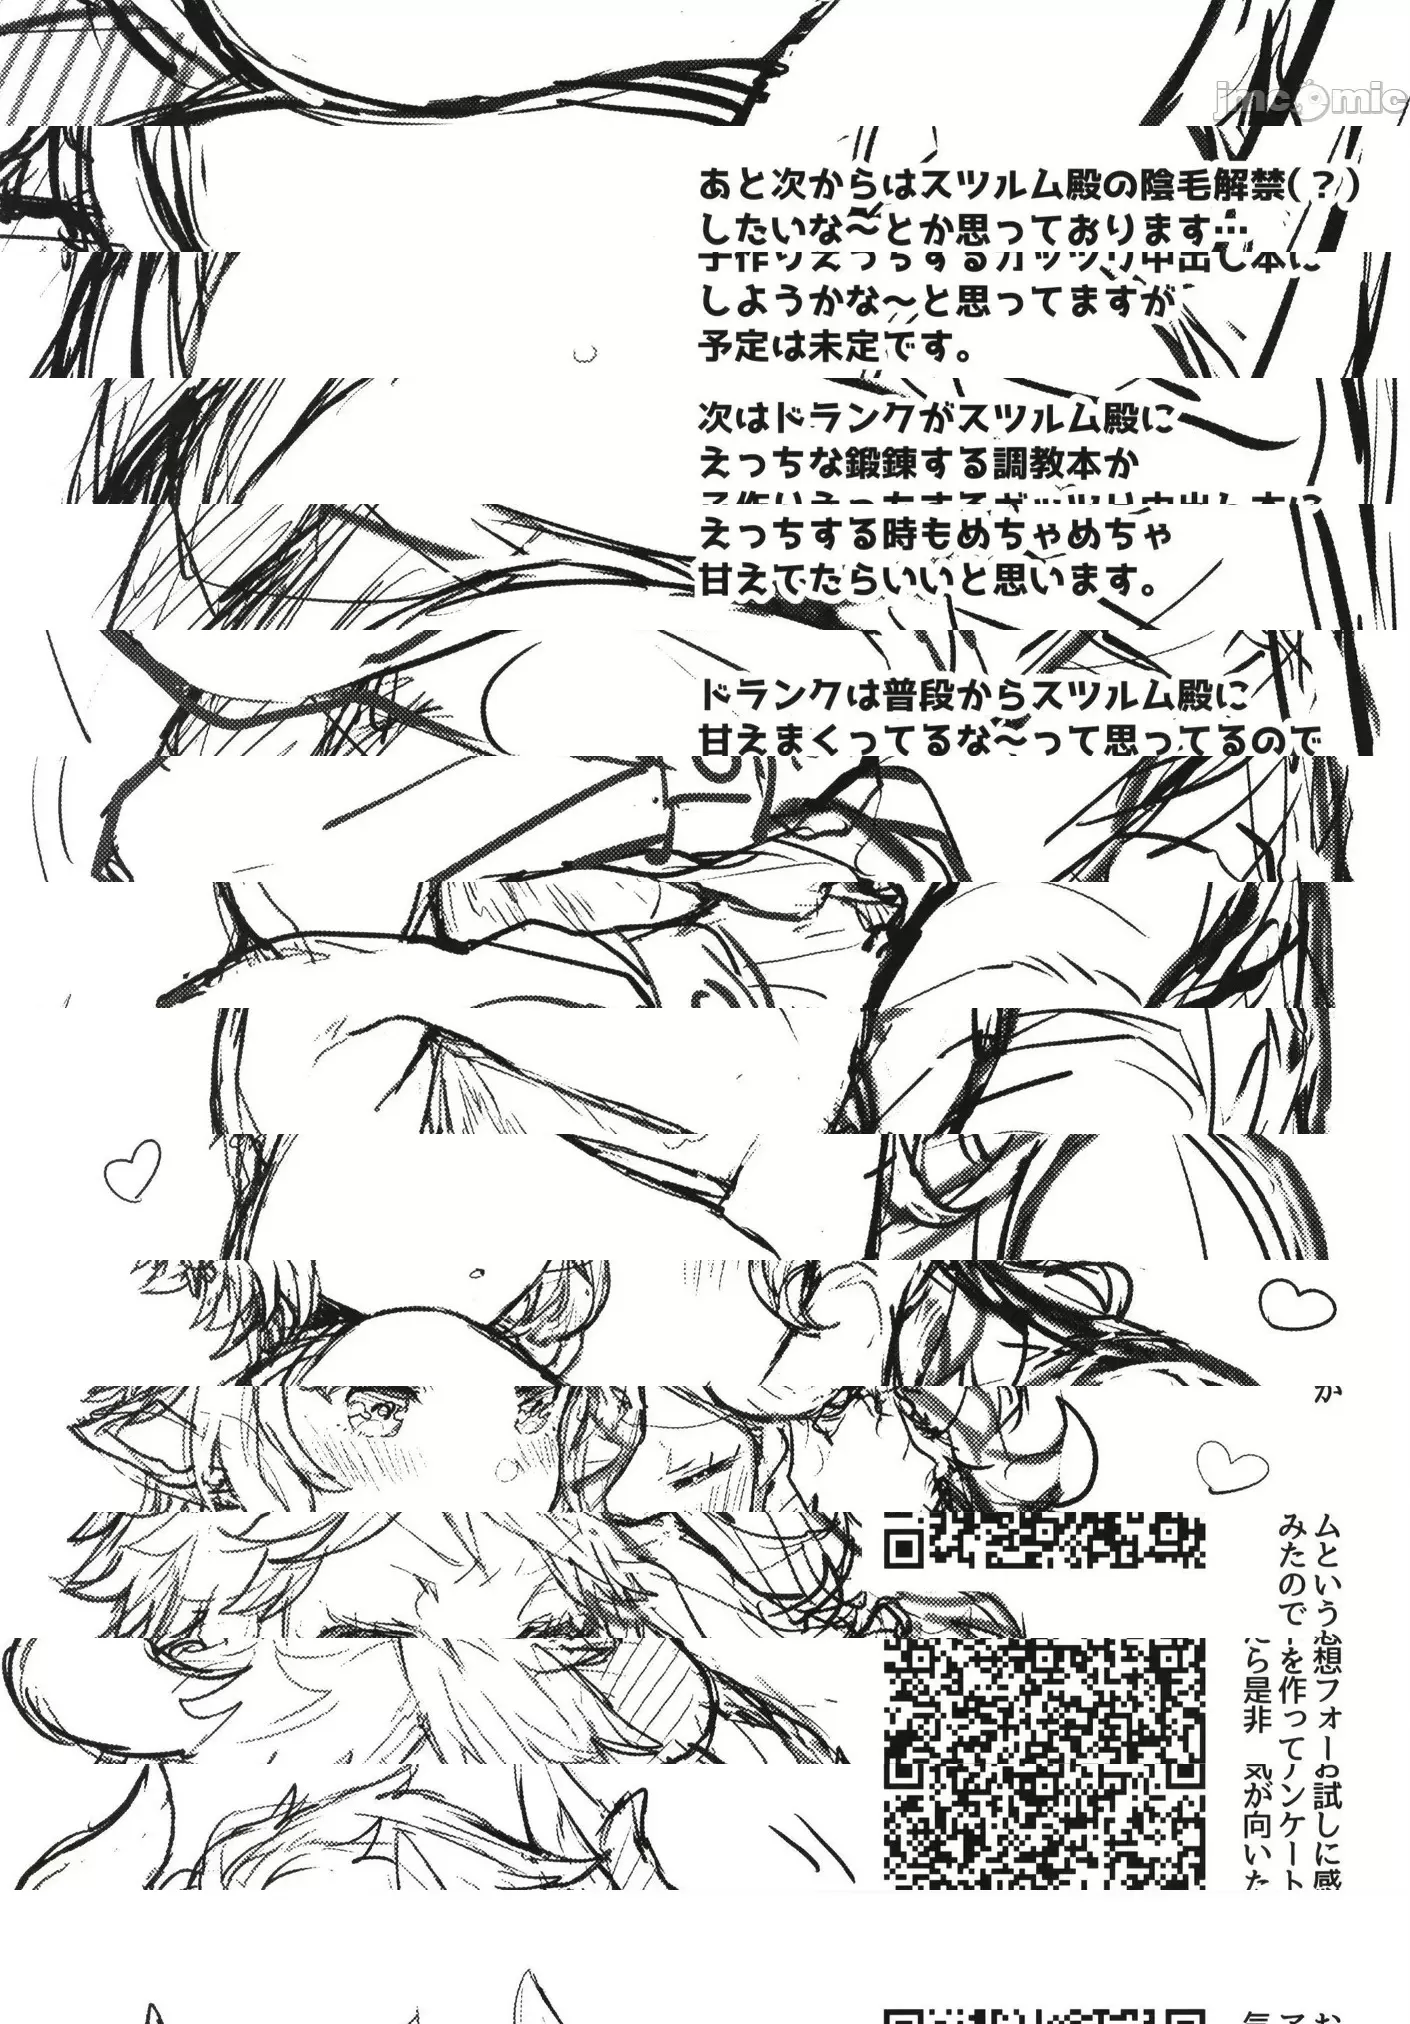 jmcomic
あと次からはスツルム殿の陰毛解禁(？)
したいな～とか思っております…
子作りえっちするガッツリ中出し本に
しようかな～と思ってますが
予定は未定です。
次はドランクがスツルム殿に
えっちな鍛錬する調教本か
子作りえっちするガッツリ中出し本に
えっちする時もめちゃめちゃ
甘えてたらいいと思います。
ドランクは普段からスツルム殿に
甘えまくってるな～って思ってるので
か
ムという
みたので
想フォー
を作って
ら是非
お試しに感
アンケート
気が向いた
お
ア
気